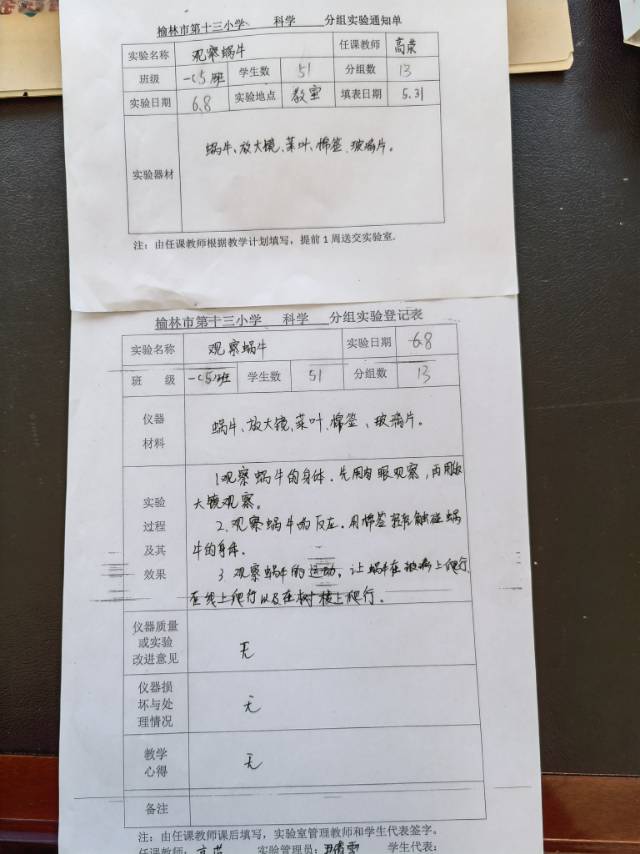 榆林市第十三小学 科学 分组实验通知单
实验名称 观察蜗牛 任课教师 高荣
班级 一(5)班 学生数 51 分组数 13
实验日期 6.8 实验地点 教室 填表日期 5.31
实验器材 蜗牛、放大镜、菜叶、棉签、玻璃片。
注：由任课教师根据教学计划填写，提前1周送交实验室.
榆林市第十三小学 科学 分组实验登记表
实验名称 观察蜗牛 实验日期 6.8
班 级 一(5)班 学生数 51 分组数 13
仪器
材料
蜗牛、放大镜、菜叶、棉签、玻璃片。
实验
过程
及其
效果
1.观察蜗牛的身体.先用肉眼观察,再用放
大镜观察。
2.观察蜗牛的反应.用棉签轻轻触碰蜗
牛的身体.
3.观察蜗牛的运动。让蜗牛在玻璃上爬行
在线上爬行以及在树枝上爬行.
仪器质量
或实验
改进意见
无
仪器损
坏与处
理情况
无
教学
心得
无
备注
注：由任课教师课后填写，实验室管理教师和学生代表签字。
任课教师：高荣 实验管理员： 学生代表：